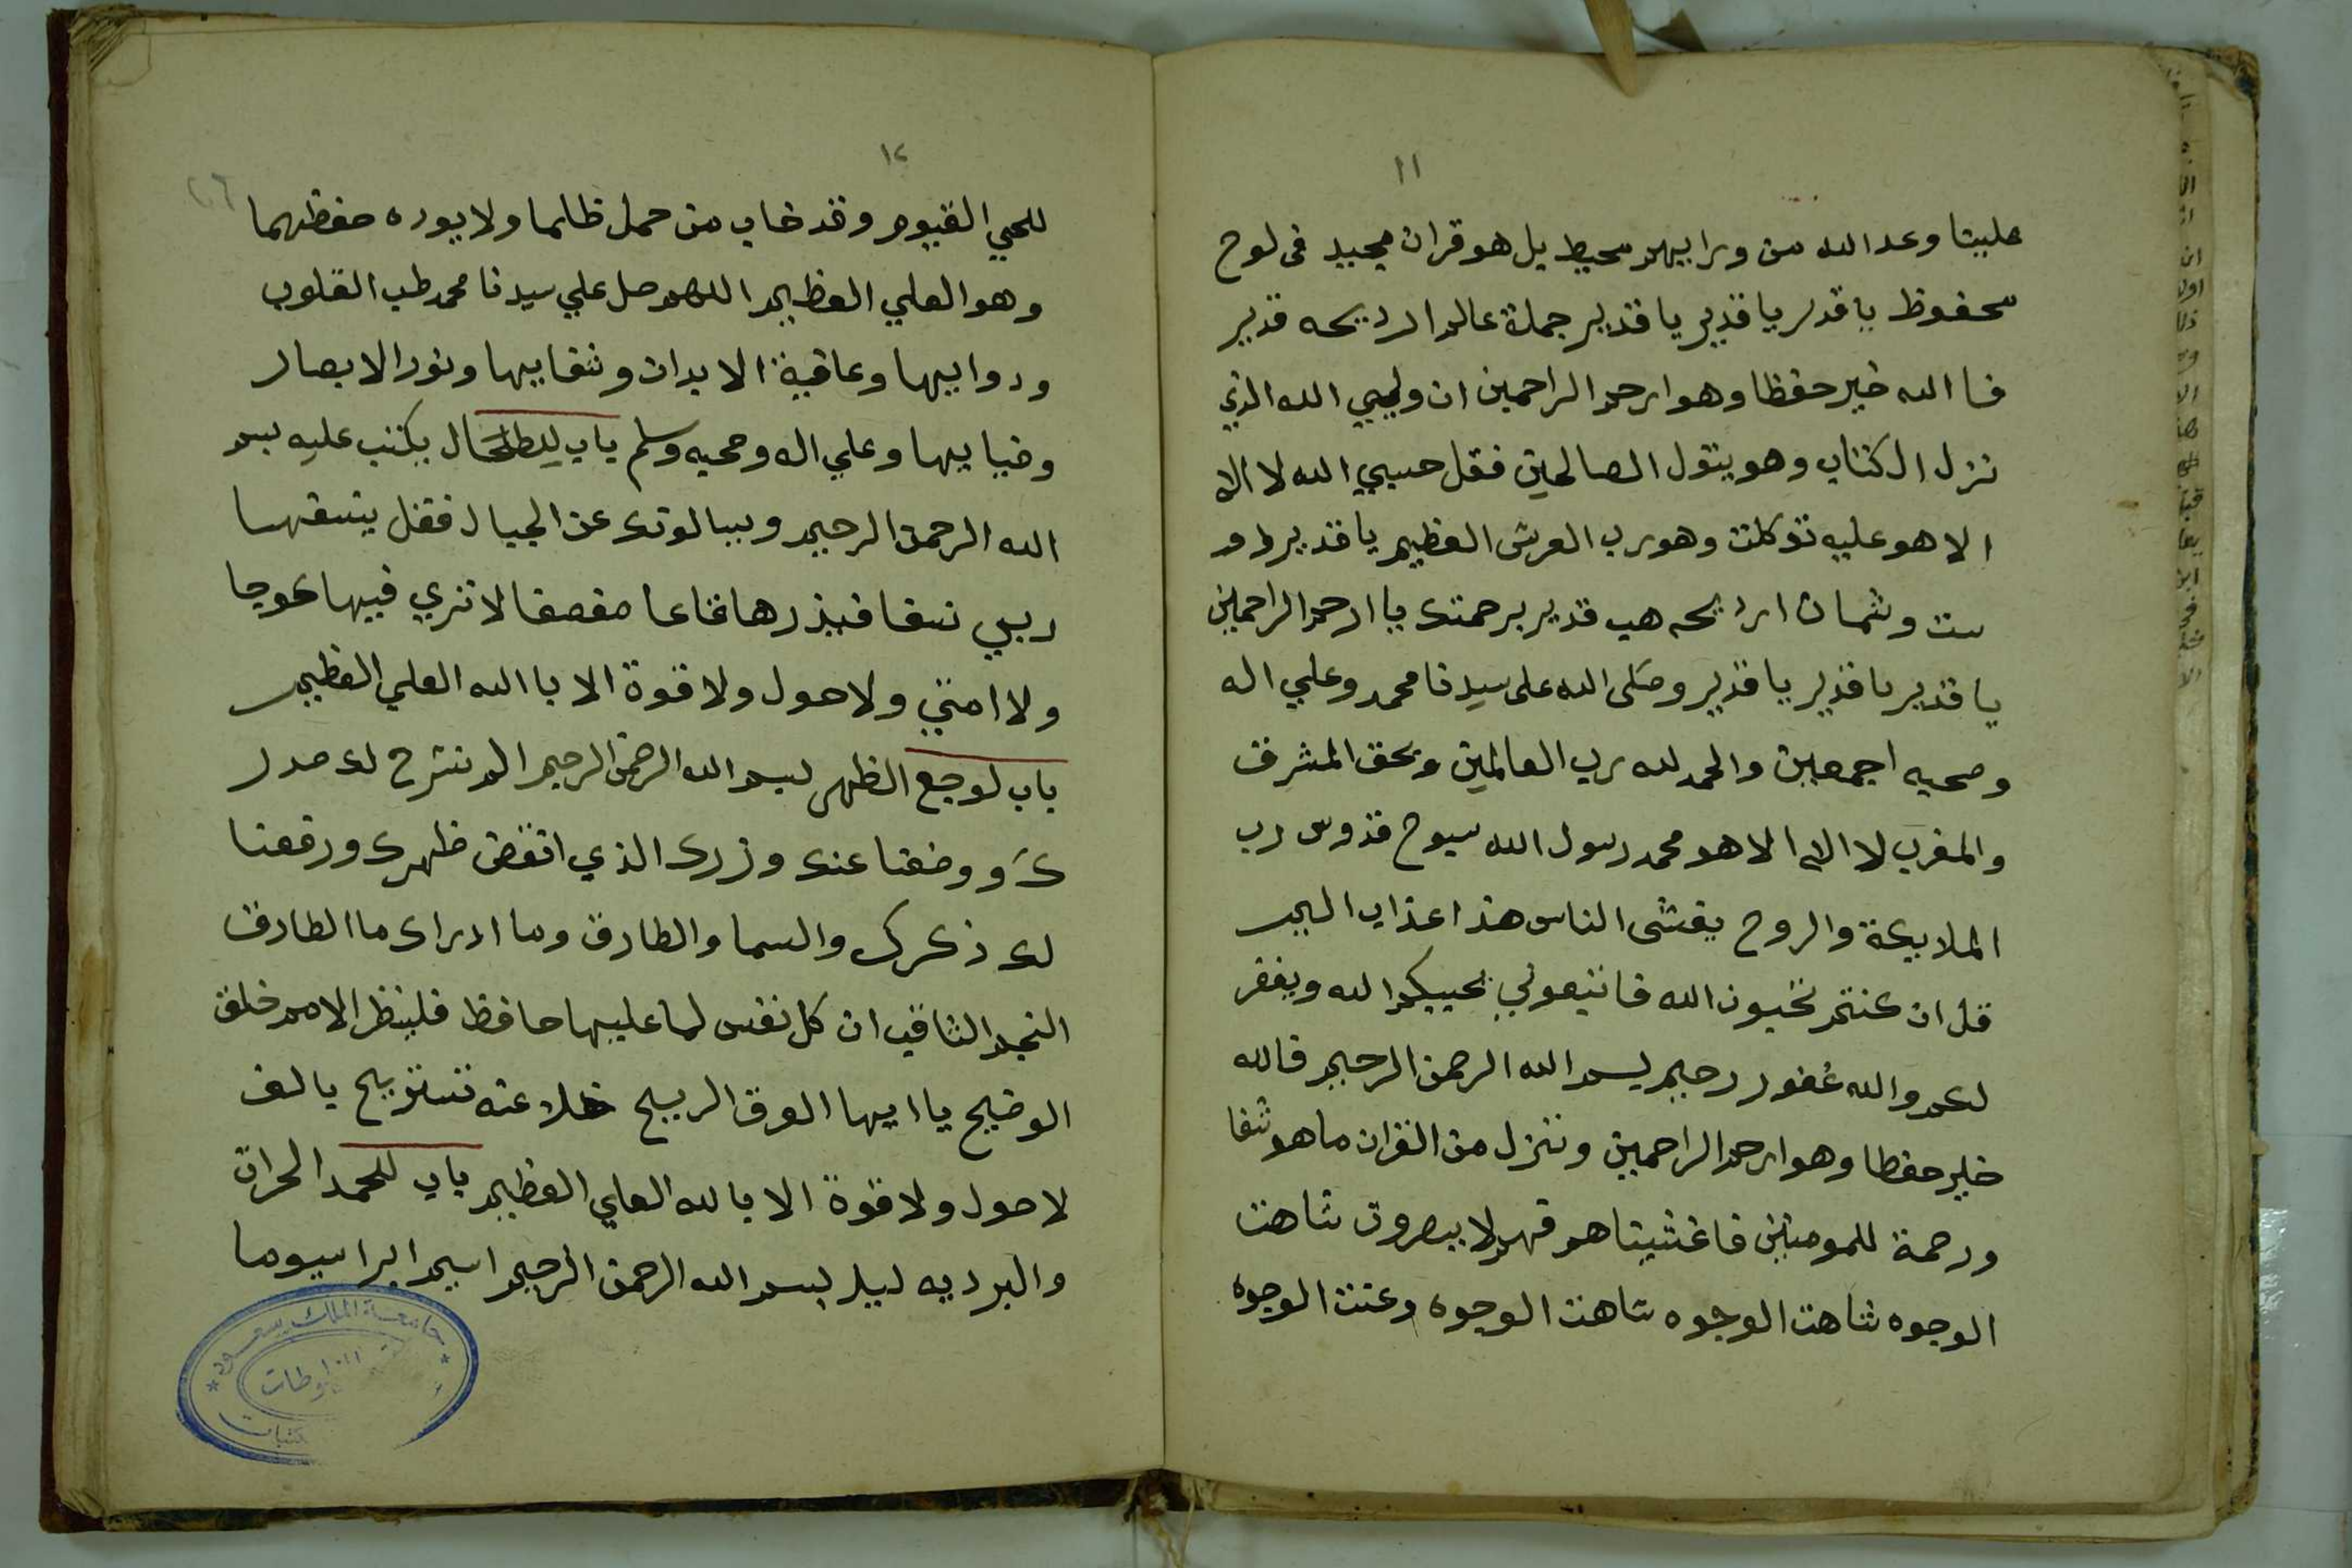 ١١
علينا وعد الله من ورايهم محيط بل هو قران مجيد فى لوح
محفوظ يا قدير يا قدير يا قدير جملة عالم اربحه قدير
فا الله خير حفظا وهو ارحم الراحمين ان وليي الله الذي
نزل الكتاب وهو يتول الصالحين فقل حسبي الله لا اله
الا هو عليه توكلت وهو رب العرش العظيم يا قدير
ست وثمان اربحه هب قدير برحمتك يا ارحم الراحمين
يا قدير يا قدير يا قدير وصلى الله على سيدنا محمد وعلي اله
وصحبه اجمعين والحمد لله رب العالمين وبحق المشرق
والمغرب لا اله الا هو محمد رسول الله سبوح قدوس رب
الملايكة والروح يغشى الناس هذا عذاب اليم
قل ان كنتم تحبون الله فاتبعوني يحببكم الله ويغفر
لكم والله غفور رحيم بسم الله الرحمن الرحيم فالله
خير حفظا وهو ارحم الراحمين وننزل من القران ما هو شفا
ورحمة للمومنين فاغشيناهم فهم لا يبصرون شاهت
الوجوه شاهت الوجوه شاهت الوجوه وعنت الوجوه
١٢
للحي القيوم وقد خاب من حمل ظلما ولا يوده حفظهما
وهو العلي العظيم اللهم صل علي سيدنا محمد طب القلوب
ودوايها وعافية الابدان وشفايها ونور الابصار
وضيايها وعلي اله وصحبه وسلم باب للطحال يكتب عليه بسم
الله الرحمن الرحيم ويسالونك عن الجبال فقل ينسفها
ربي نسفا فيذرها قاعا صفصفا لا تري فيها عوجا
ولا امتي ولا حول ولا قوة الا با الله العلي العظيم
باب لوجع الظهر بسم الله الرحمن الرحيم الم نشرح لك صدر
ك ووضعنا عنك وزرك الذي انقض ظهرك ورفعنا
لك ذكرك والسما والطارق وما ادراك ما الطارق
النجم الثاقب ان كل نفس لما عليها حافظ فلينظر الامم خلق
الوضيح يا ايها الورق الريح خلا عنه تستريح بالف
لا حول ولا قوة الا بالله العلي العظيم باب للحمد الحراق
والبرديه ليلد بسم الله الرحمن الرحيم اسيم ابراسيوما
جامعة الملك سعود